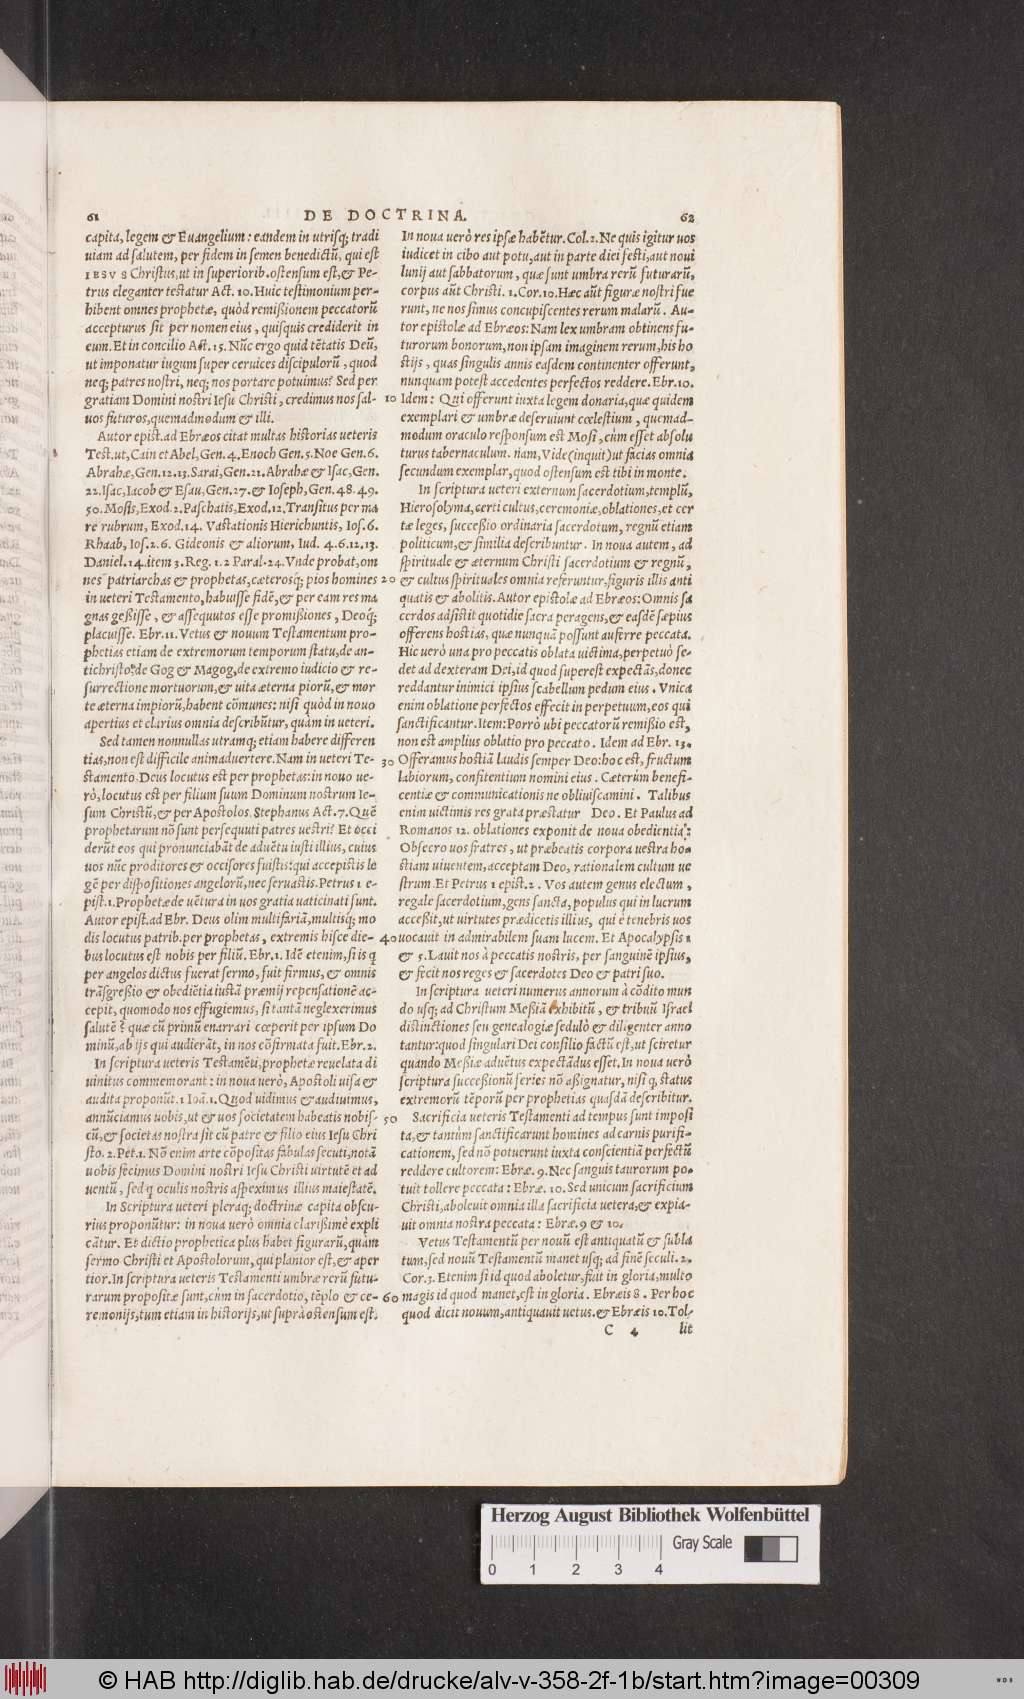 61
DE DOCTRINA.
62
capita, legem & Euangelium: eandem in utrisq; tradi
uiam ad salutem, per fidem in semen benedictũ, qui est
IESVS Christus, ut in superiorib. ostensum est, & Pe-
trus eleganter testatur Act. 10. Huic testimonium per-
hibent omnes prophetæ, quòd remissionem peccatorũ
accepturus sit per nomen eius, quisquis crediderit in
eum. Et in concilio Act. 15. Nũc ergo quid tẽtatis Deũ,
ut imponatur iugum super ceruices discipulorũ, quod
neq; patres nostri, neq; nos portare potuimus? Sed per
gratiam Domini nostri Iesu Christi, credimus nos sal-
uos futuros, quemadmodum & illi.
Autor epist. ad Ebræos citat multas historias ueteris
Test. ut, Cain et Abel, Gen. 4. Enoch Gen. 5. Noe Gen. 6.
Abrahæ, Gen. 12. 13. Sarai, Gen. 21. Abrahæ & Isac, Gen.
22. Isac, Iacob & Esau, Gen. 27. & Ioseph, Gen. 48. 49.
50. Mosis, Exod. 2. Paschatis, Exod. 12. Transitus per ma
re rubrum, Exod. 14. Vastationis Hierichuntis, Ios. 6.
Rhaab, Ios. 2. 6. Gideonis & aliorum, Iud. 4. 6. 12. 13.
Daniel. 14. item 3. Reg. 1. 2 Paral. 24. Vnde probat, om
nes patriarchas & prophetas, cæterosq́; pios homines
in ueteri Testamento, habuisse fidẽ, & per eam res ma
gnas gessisse, & assequutos esse promissiones, Deoq́;
placuisse. Ebr. 11. Vetus & nouum Testamentum pro-
phetias etiam de extremorum temporum statu, de an-
tichristo: de Gog & Magog, de extremo iudicio & re-
surrectione mortuorum, & uita æterna piorũ, & mor
te æterna impiorũ, habent cõmunes: nisi quòd in nouo
apertius et clarius omnia describũtur, quàm in ueteri.
Sed tamen nonnullas utramq; etiam habere differen
tias, non est difficile animaduertere. Nam in ueteri Te-
stamento Deus locutus est per prophetas: in nouo ue-
rò, locutus est per filium suum Dominum nostrum Ie-
sum Christũ, & per Apostolos. Stephanus Act. 7. Quẽ
prophetarum nõ sunt persequuti patres uestri? Et occi
derũt eos qui pronunciabãt de aduẽtu iusti illius, cuius
uos nũc proditores & occisores fuistis: qui accepistis le
gẽ per dispositiones angelorũ, nec seruastis. Petrus 1 e-
pist. 1. Prophetæ de uẽtura in uos gratia uaticinati sunt.
Autor epist. ad Ebr. Deus olim multifariã, multisq́; mo
dis locutus patrib. per prophetas, extremis hisce die-
bus locutus est nobis per filiũ. Ebr. 1. Idẽ etenim, si is q
per angelos dictus fuerat sermo, fuit firmus, & omnis
trãsgressio & obediẽtia iustã præmij repensationẽ ac-
cepit, quomodo nos effugiemus, si tantã neglexerimus
salutẽ? quæ cũ primũ enarrari cœperit per ipsum Do
minũ, ab ijs qui audierãt, in nos cõfirmata fuit. Ebr. 2.
In scriptura ueteris Testamẽti, prophetæ reuelata di
uinitus commemorant: in noua uerò, Apostoli uisa &
audita proponũt. 1 Ioã. 1. Quod uidimus & audiuimus,
annũciamus uobis, ut & uos societatem habeatis nobis-
cũ, & societas nostra sit cũ patre & filio eius Iesu Chri
sto. 2. Pet. 1. Nõ enim arte cõpositas fabulas secuti, notã
uobis fecimus Domini nostri Iesu Christi uirtutẽ et ad
uentũ, sed q oculis nostris aspeximus illius maiestatẽ.
In Scriptura ueteri pleraq; doctrinæ capita obscu-
rius proponũtur: in noua uerò omnia clarissimè expli
cãtur. Et dictio prophetica plus habet figurarũ, quàm
sermo Christi et Apostolorum, qui planior est, & aper
tior. In scriptura ueteris Testamenti umbræ rerũ futu-
rarum propositæ sunt, cùm in sacerdotio, tẽplo & ce-
remonijs, tum etiam in historijs, ut suprà ostensum est.
10
20
30
40
50
60
In noua uerò res ipsæ habẽtur. Col. 2. Ne quis igitur uos
iudicet in cibo aut potu, aut in parte diei festi, aut noui
lunij aut sabbatorum, quæ sunt umbra rerũ futurarũ,
corpus aũt Christi. 1. Cor. 10. Hæc aũt figuræ nostri fue
runt, ne nos simus concupiscentes rerum malarũ. Au-
tor epistolæ ad Ebræos: Nam lex umbram obtinens fu-
turorum bonorum, non ipsam imaginem rerum, his ho
stijs, quas singulis annis easdem continenter offerunt,
nunquam potest accedentes perfectos reddere. Ebr. 10.
Idem: Qui offerunt iuxta legem donaria, quæ quidem
exemplari & umbræ deseruiunt cœlestium, quemad-
modum oraculo responsum est Mosi, cùm esset absolu
turus tabernaculum. nam, Vide (inquit) ut facias omnia
secundum exemplar, quod ostensum est tibi in monte.
In scriptura ueteri externum sacerdotium, templũ,
Hierosolyma, certi cultus, ceremoniæ, oblationes, et cer
tæ leges, successio ordinaria sacerdotum, regnũ etiam
politicum, & similia describuntur. In noua autem, ad
spirituale & æternum Christi sacerdotium & regnũ,
& cultus spirituales omnia referuntur, figuris illis anti
quatis & abolitis. Autor epistolæ ad Ebræos: Omnis sa
cerdos adsistit quotidie sacra peragens, & easdẽ sæpius
offerens hostias, quæ nunquã possunt auferre peccata.
Hic uerò una pro peccatis oblata uictima, perpetuò se-
det ad dexteram Dei, id quod superest expectãs, donec
reddantur inimici ipsius scabellum pedum eius. Vnica
enim oblatione perfectos effecit in perpetuum, eos qui
sanctificantur. Item: Porrò ubi peccatorũ remissio est,
non est amplius oblatio pro peccato. Idem ad Ebr. 13.
Offeramus hostiã laudis semper Deo: hoc est, fructum
labiorum, confitentium nomini eius. Cæterùm benefi-
centiæ & communicationis ne obliuiscamini. Talibus
enim uictimis res grata præstatur Deo. Et Paulus ad
Romanos 12. oblationes exponit de noua obedientia:
Obsecro uos fratres, ut præbeatis corpora uestra ho-
stiam uiuentem, acceptam Deo, rationalem cultum ue
strum. Et Petrus 1 epist. 2. Vos autem genus electum,
regale sacerdotium, gens sancta, populus qui in lucrum
accessit, ut uirtutes prædicetis illius, qui è tenebris uos
uocauit in admirabilem suam lucem. Et Apocalypsis 1
& 5. Lauit nos à peccatis nostris, per sanguinẽ ipsius,
& fecit nos reges & sacerdotes Deo & patri suo.
In scriptura ueteri numerus annorum à cõdito mun
do usq; ad Christum Messiã exhibitũ, & tribuũ Israel
distinctiones seu genealogiæ sedulò & diligenter anno
tantur: quod singulari Dei consilio factũ est, ut sciretur
quando Messiæ aduẽtus expectãdus esset. In noua uerò
scriptura successionũ series nõ assignatur, nisi q, status
extremorũ tẽporũ per prophetias quasdã describitur.
Sacrificia ueteris Testamenti ad tempus sunt imposi
ta, & tantùm sanctificarunt homines ad carnis purifi-
cationem, sed nõ potuerunt iuxta conscientiã perfectũ
reddere cultorem: Ebræ. 9. Nec sanguis taurorum po-
tuit tollere peccata: Ebræ. 10. Sed unicum sacrificium
Christi, aboleuit omnia illa sacrificia uetera, & expia-
uit omnia nostra peccata: Ebræ. 9 & 10.
Vetus Testamentũ per nouũ est antiquatũ & subla
tum, sed nouũ Testamentũ manet usq; ad finẽ seculi. 2.
Cor. 3. Etenim si id quod aboletur, fuit in gloria, multo
magis id quod manet, est in gloria. Ebræis 8. Per hoc
quod dicit nouum, antiquauit uetus. & Ebræis 10. Tol-
C 4
lit
Herzog August Bibliothek Wolfenbüttel
Gray Scale
0 1 2 3 4
© HAB http://diglib.hab.de/drucke/alv-v-358-2f-1b/start.htm?image=00309